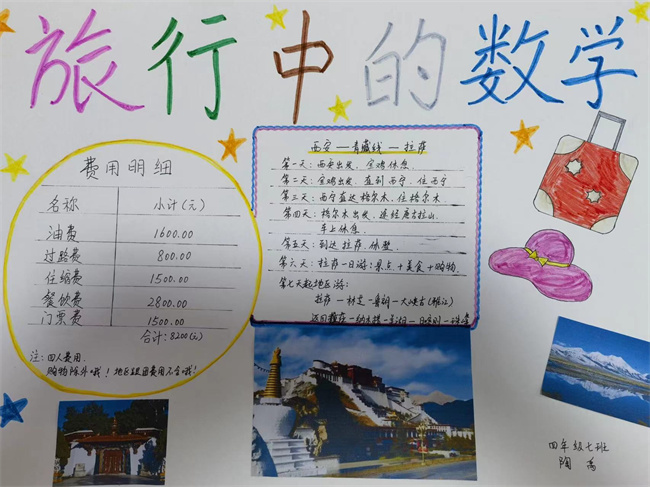 旅行中的数学
费用明细
名称 小计(元)
油费 1600.00
过路费 800.00
住宿费 1500.00
餐饮费 2800.00
门票费 1500.00
合计:8200(元)
注:四人费用.
购物除外哦!地区租车费用不含哦!
西安—青藏线—拉萨
第一天:西安出发,宝鸡休息.
第二天:宝鸡出发,直到西宁,住西宁
第三天:西宁直达格尔木,住格尔木
第四天:格尔木出发,途经唐古拉山,
车上休息.
第五天:到达拉萨,休整
第六天:拉萨一日游:景点+美食+购物.
第七天起地区游:
拉萨—林芝—鲁朗—大峡谷
四年级七班
陶